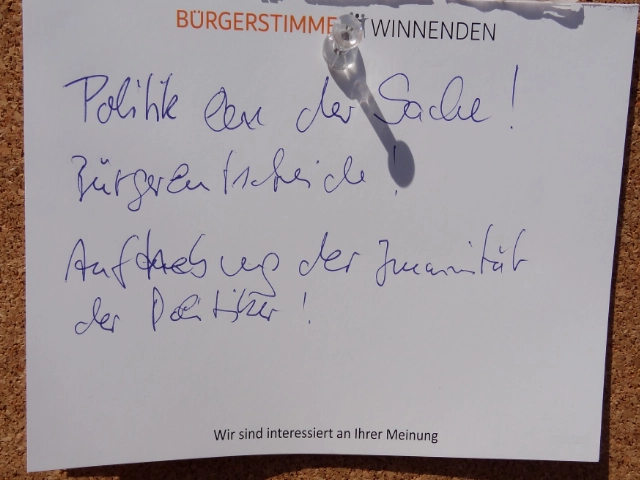 BÜRGERSTIMME WINNENDEN
Politik an der Sache!
Bürgerentscheide!
Aufhebung der Immunität
der Politiker!
Wir sind interessiert an Ihrer Meinung